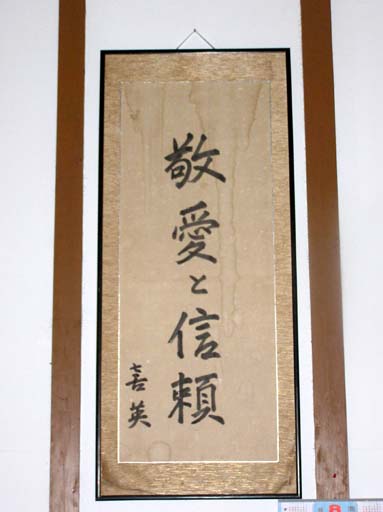 敬愛と信頼
喜英